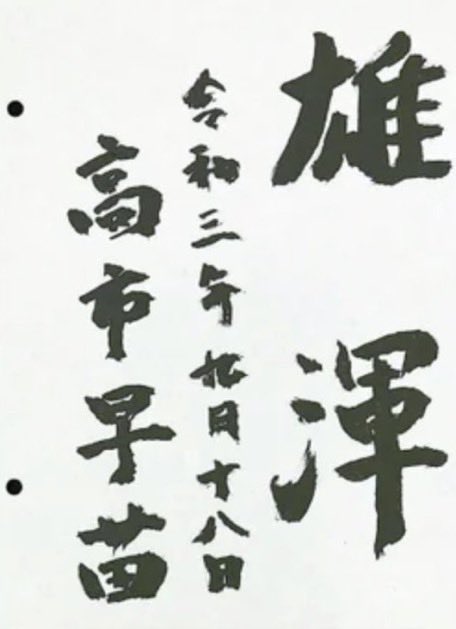 雄渾
令和三年九月十八日
高市早苗